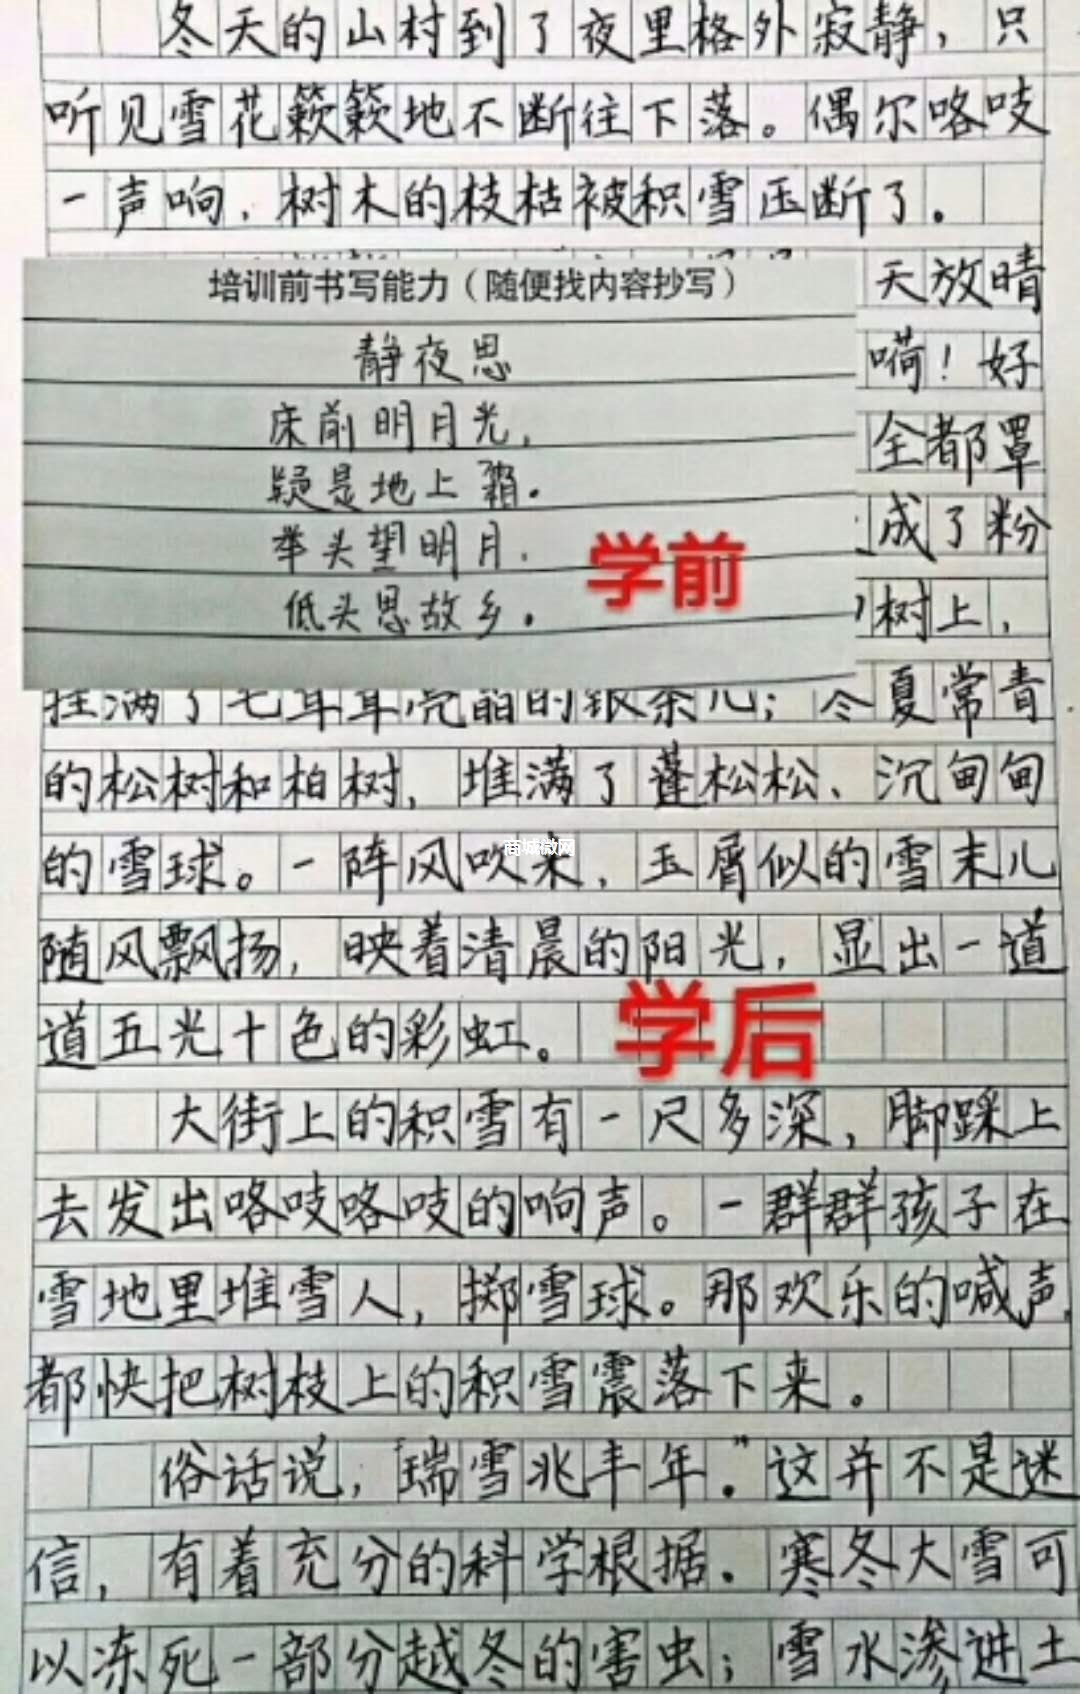 冬天的山村到了夜里格外寂静，只
听见雪花簌簌地不断往下落。偶尔咯吱
一声响，树木的枝枯被积雪压断了。
天放晴
嗬！好
全都罩
成了粉
树上，
培训前书写能力（随便找内容抄写）
静夜思
床前明月光，
疑是地上霜。
举头望明月，
低头思故乡。
学前
挂满了毛茸茸亮晶的银条儿；冬夏常青
的松树和柏树，堆满了蓬松松、沉甸甸
的雪球。一阵风吹来，玉屑似的雪末儿
商城微网
随风飘扬，映着清晨的阳光，显出一道
道五光十色的彩虹。
学后
大街上的积雪有一尺多深，脚踩上
去发出咯吱咯吱的响声。一群群孩子在
雪地里堆雪人，掷雪球。那欢乐的喊声，
都快把树枝上的积雪震落下来。
俗话说，“瑞雪兆丰年。”这并不是迷
信，有着充分的科学根据。寒冬大雪可
以冻死一部分越冬的害虫；雪水渗进土